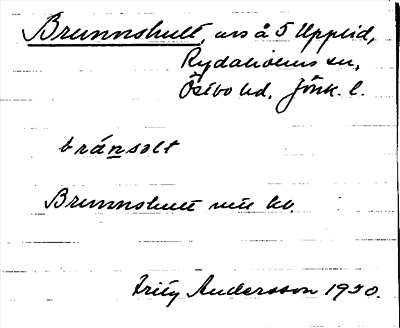 Brunnshult, avs å 5 Upplid,
Rydaholms sn,
Östbo hd, Jönk. l.
bránsolt
Brunnshult
Fritz Andersson 1930.